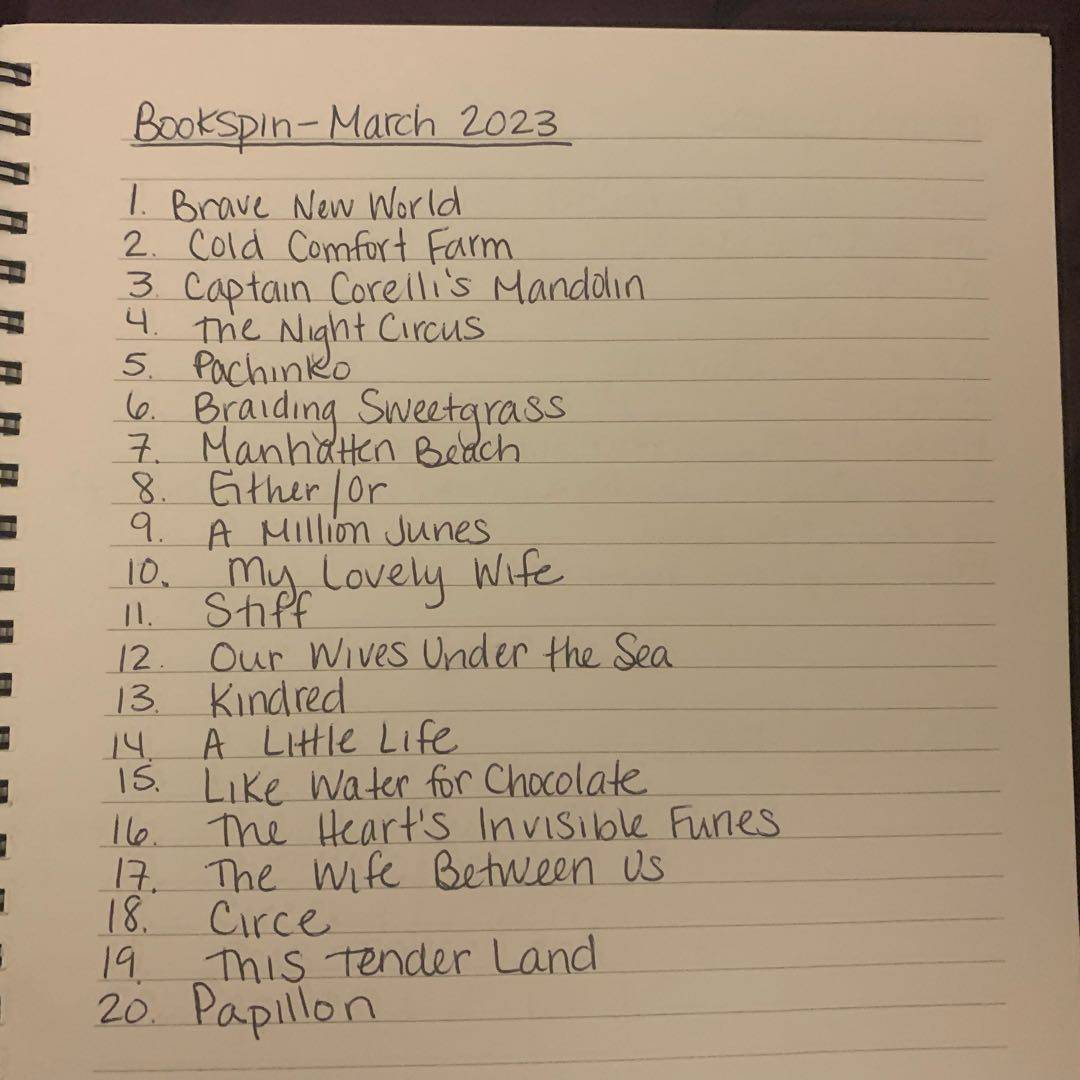 Bookspin - March 2023
1. Brave New World
2. Cold Comfort Farm
3. Captain Corelli's Mandolin
4. The Night Circus
5. Pachinko
6. Braiding Sweetgrass
7. Manhatten Beach
8. Either/Or
9. A Million Junes
10. My Lovely Wife
11. Stiff
12. Our Wives Under the Sea
13. Kindred
14. A Little Life
15. Like Water for Chocolate
16. The Heart's Invisible Furies
17. The Wife Between Us
18. Circe
19. This Tender Land
20. Papillon